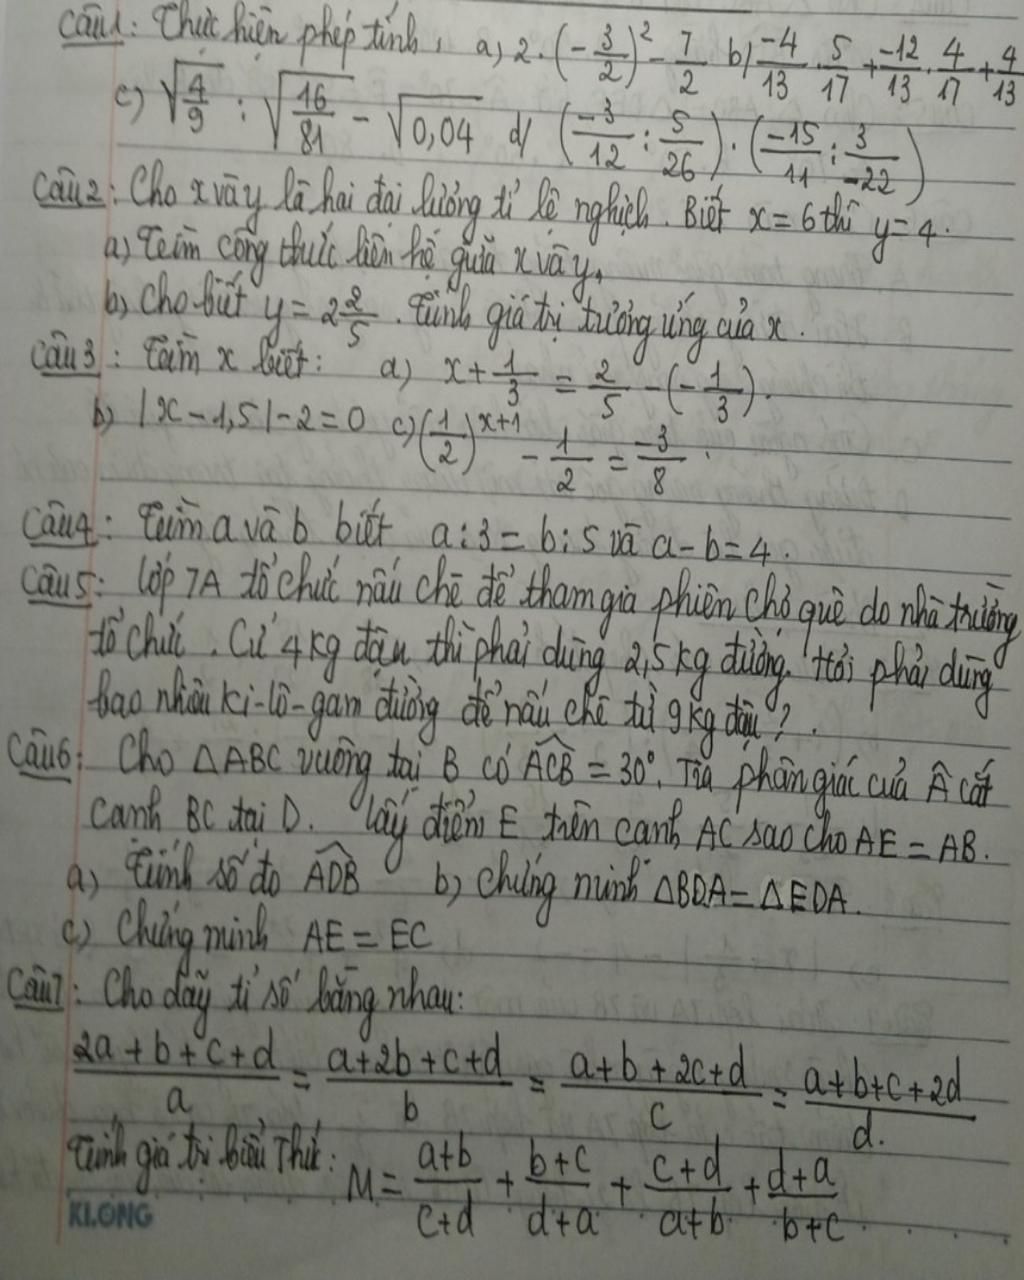 Câu 1: Thực hiện phép tính: a) 2.(-3/2)² - 7/2 b) -4/13 . 5/17 + -12/13 . 4/17 + 4/13
c) √(4/9) : √(16/81) - √0,04 d) (-3/12 : 5/26) . (-15/11 : 3/-22)
Câu 2: Cho x và y là hai đại lượng tỉ lệ nghịch. Biết x = 6 thì y = 4.
a) Tìm công thức liên hệ giữa x và y.
b) Cho biết y = 2 2/5. Tính giá trị tương ứng của x.
Câu 3: Tìm x biết: a) x + 1/3 = 2/5 - (-1/3).
b) |x - 1,5| - 2 = 0 c) (1/2)^(x+1) - 1/2 = -3/8.
Câu 4: Tìm a và b biết a : 3 = b : 5 và a - b = 4.
Câu 5: Lớp 7A tổ chức nấu chè để tham gia phiên chợ quê do nhà trường
tổ chức. Cứ 4 kg đậu thì phải dùng 2,5 kg đường. Hỏi phải dùng
bao nhiêu ki-lô-gam đường để nấu chè từ 9 kg đậu?.
Câu 6: Cho △ABC vuông tại B có ACB̂ = 30°. Tia phân giác của Â cắt
cạnh BC tại D. Lấy điểm E trên cạnh AC sao cho AE = AB.
a) Tính số đo ADB̂ b) Chứng minh △BDA = △EDA.
c) Chứng minh AE = EC
Câu 7: Cho dãy tỉ số bằng nhau:
(2a+b+c+d)/a = (a+2b+c+d)/b = (a+b+2c+d)/c = (a+b+c+2d)/d.
Tính giá trị biểu thức: M = (a+b)/(c+d) + (b+c)/(d+a) + (c+d)/(a+b) + (d+a)/(b+c)
KLONG